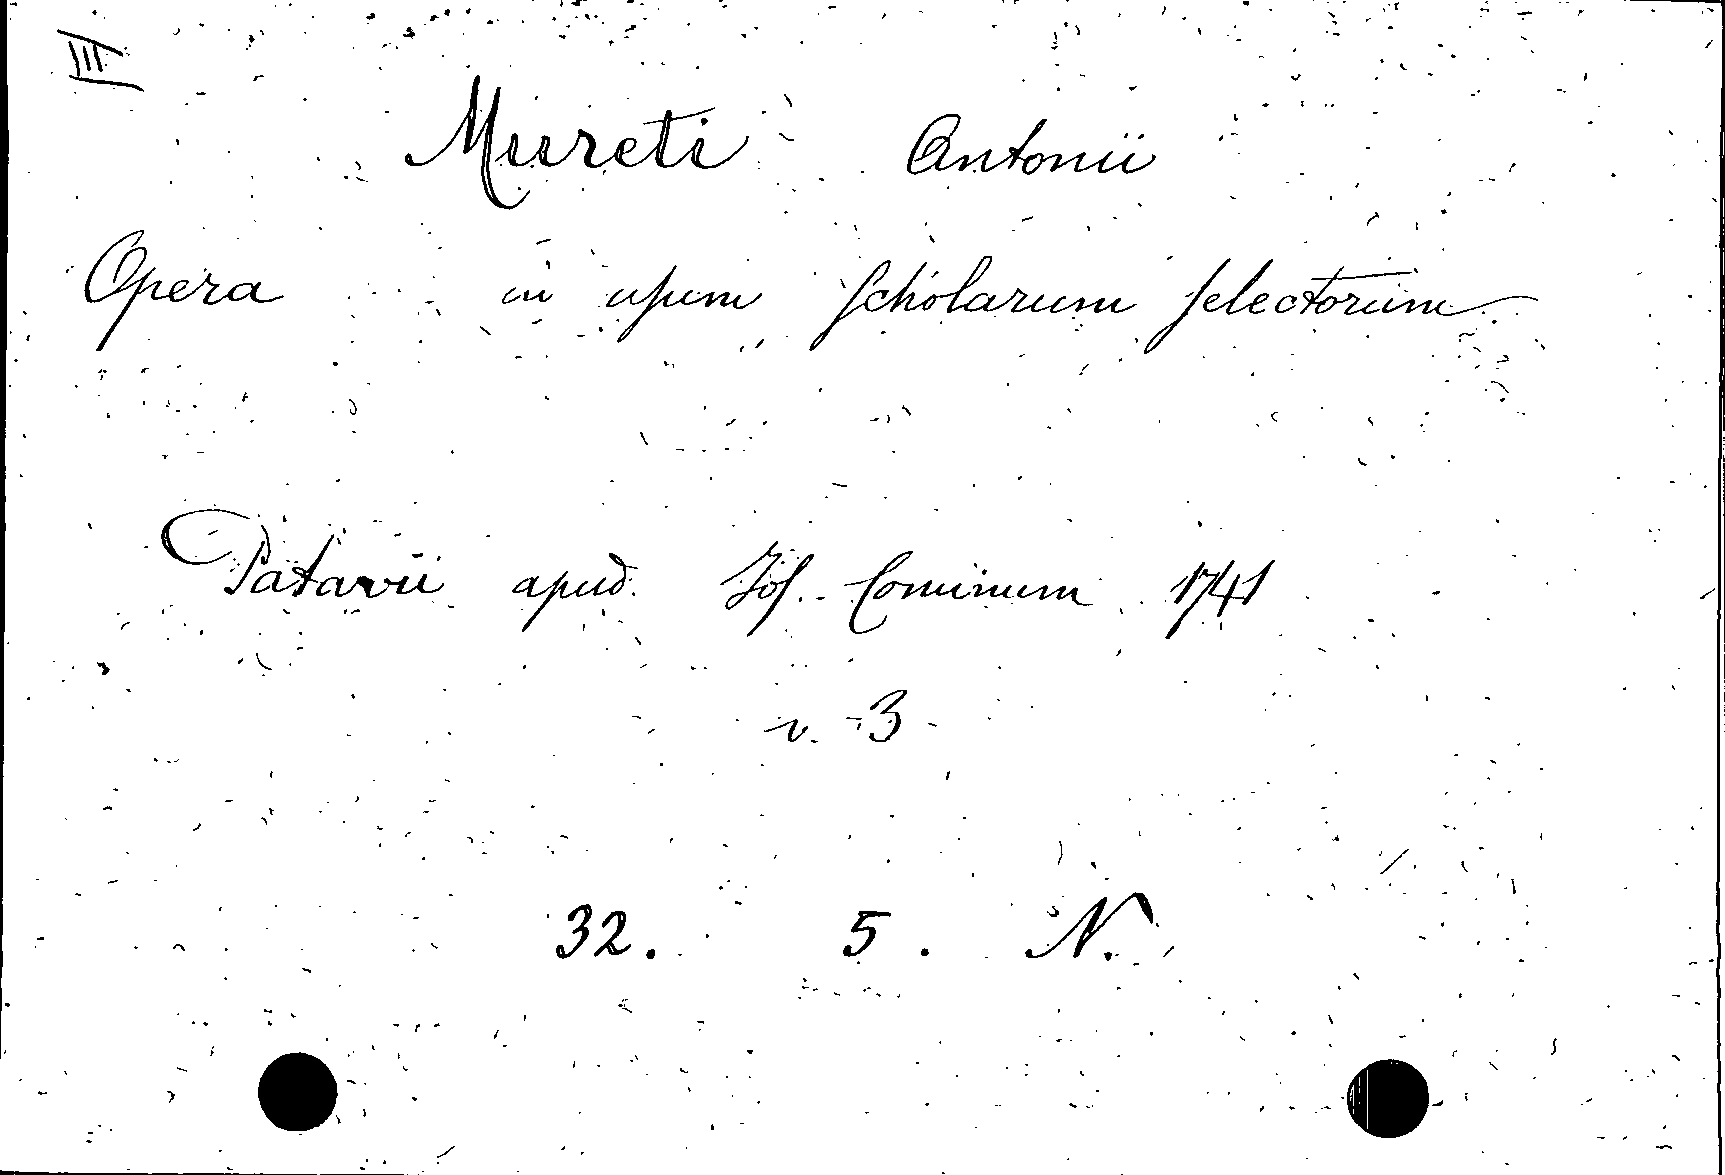 III
Mureti Antonii
Opera in usum scholarum selectorum
Patavii apud. Jos. Cominum 1741
v. 3
32. 5. N.